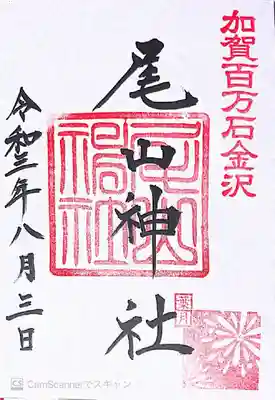 加賀百万石金沢
尾山神社
尾山神社
葉月
令和三年八月三日
CS CamScannerでスキャン